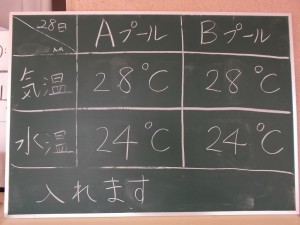 28日 Aプール Bプール
気温 28℃ 28℃
水温 24℃ 24℃
入れます